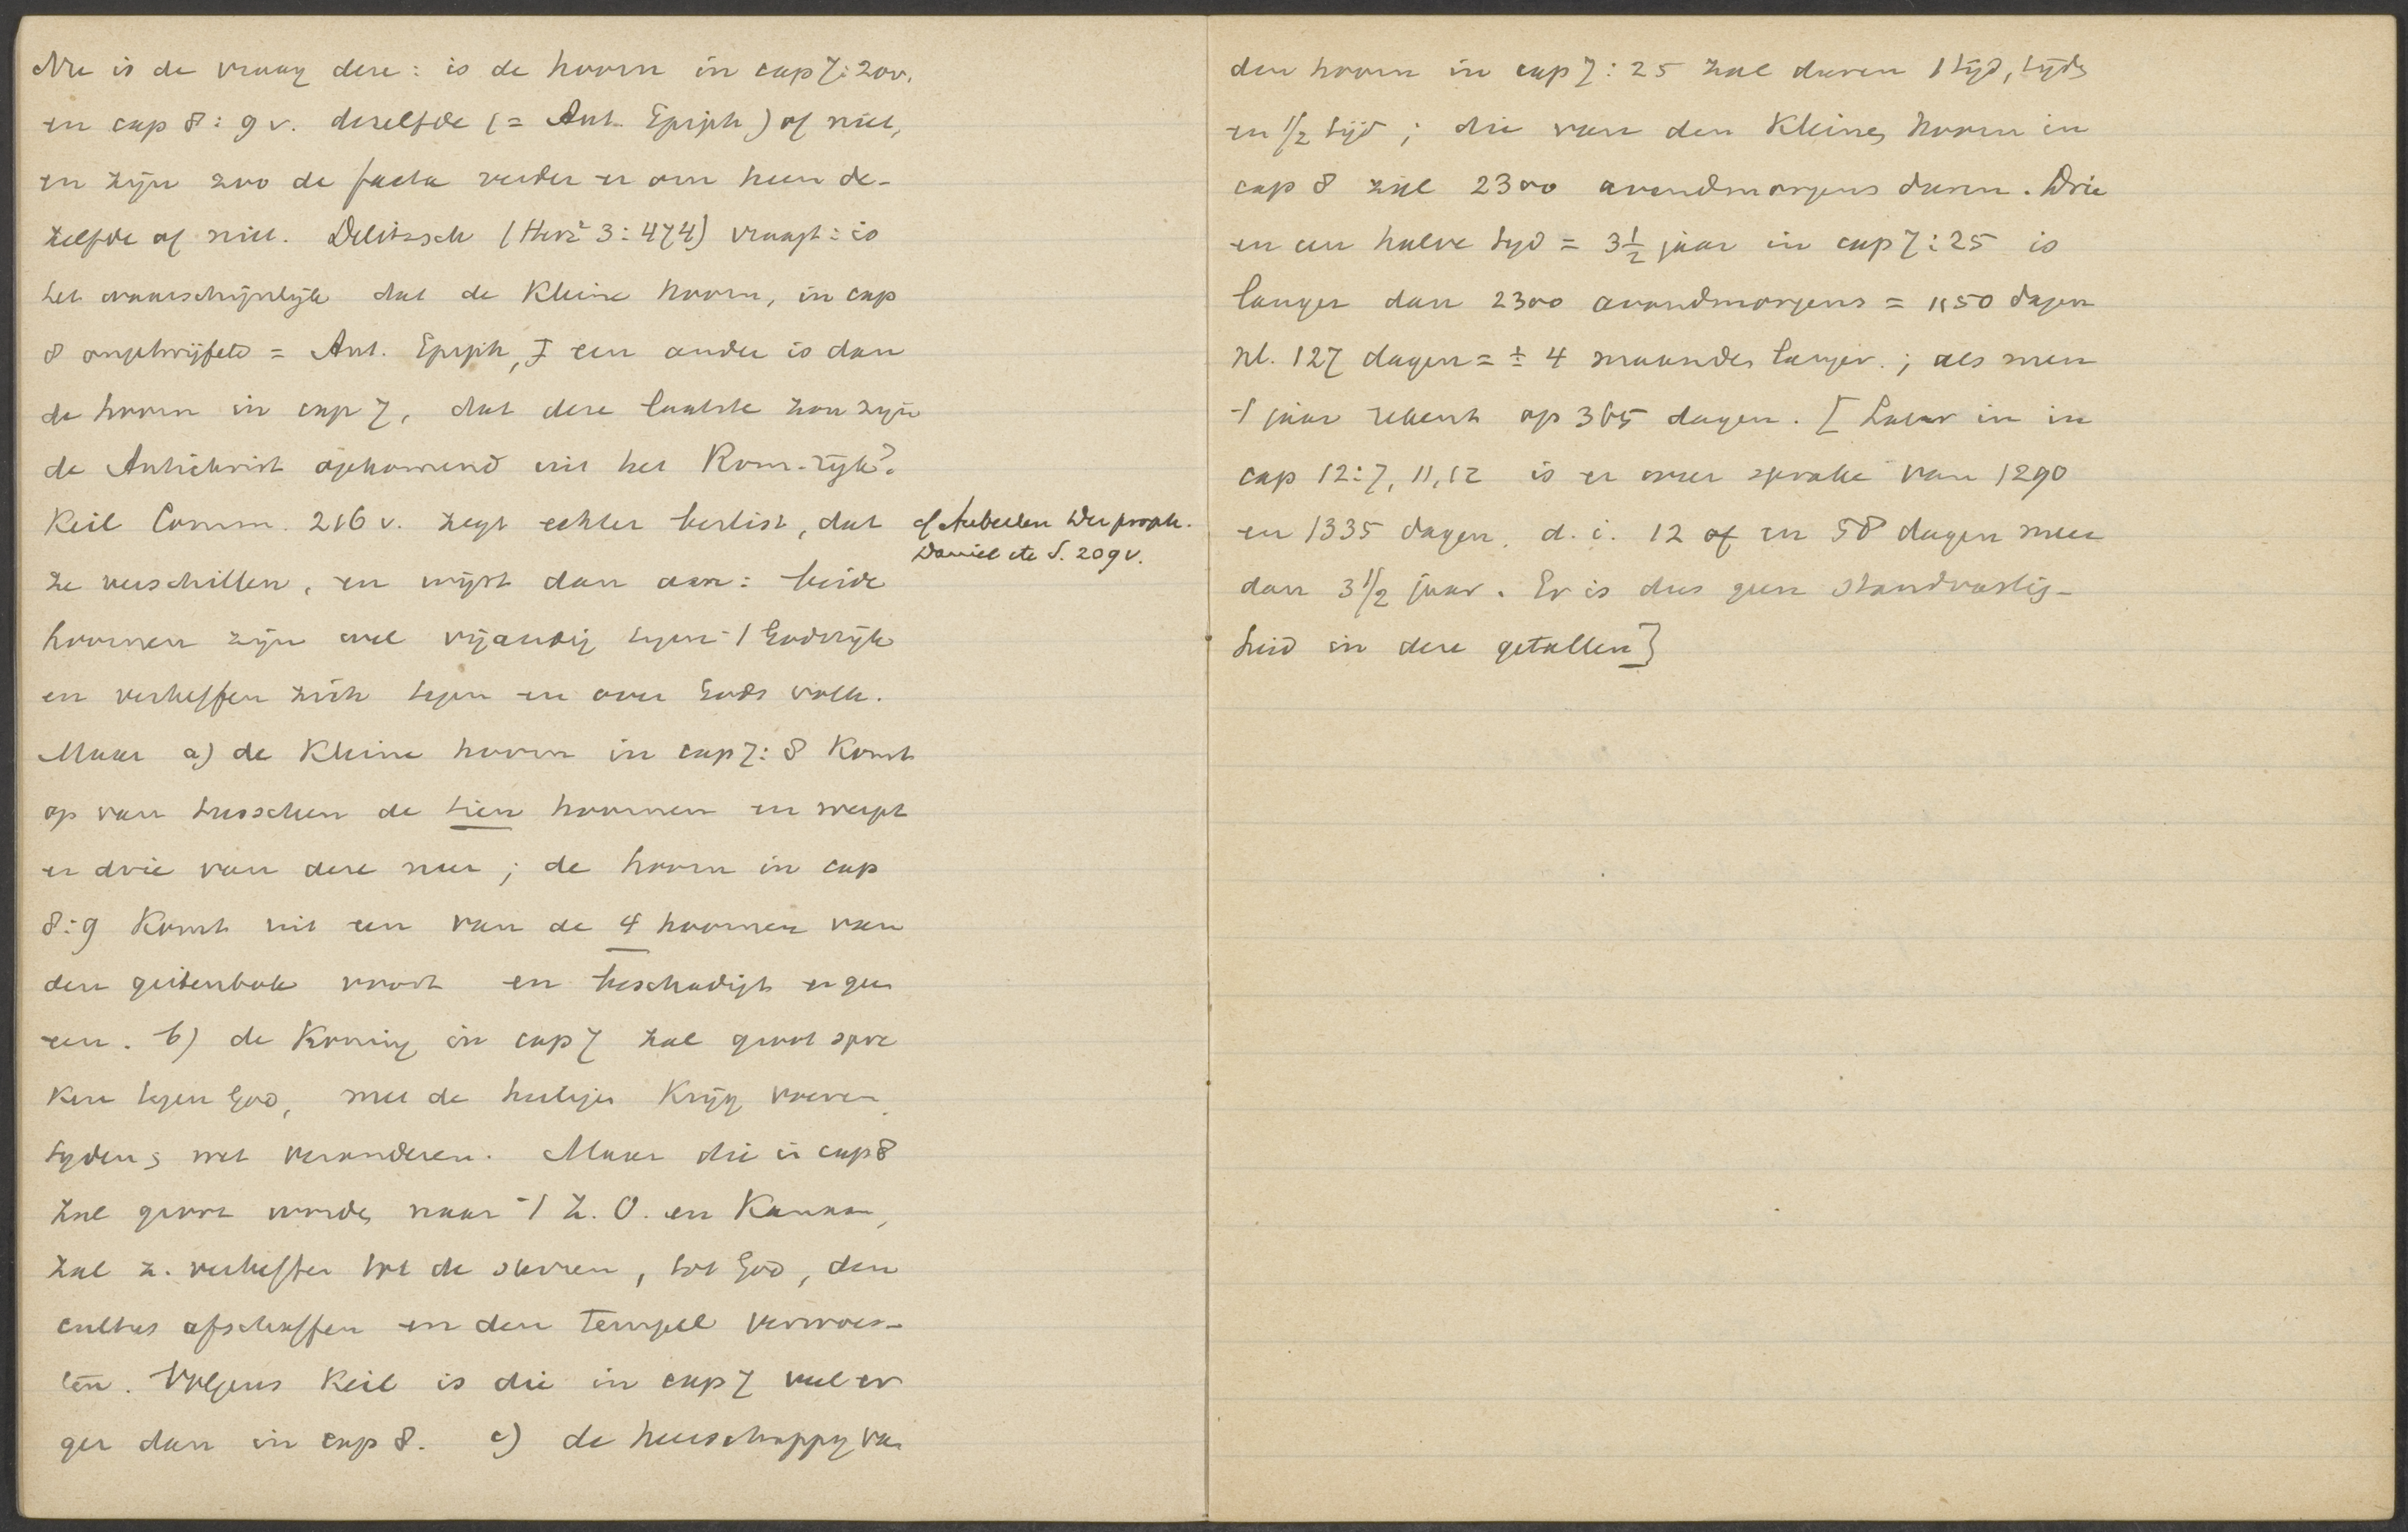 Nu is de vraag deze: is de hoorn in cap 7:20v.
en cap 8:9v. dezelfde (= Ant. Epiph) of niet,
en zijn zoo de facta verder er om heen de-
zelfde of niet. Delitzsch (Herz² 3:474) vraagt: is
het waarschijnlijk dat de kleine hoorn, in cap
8 ongetwijfeld = Ant. Epiph, een ander is dan
de hoorn in cap 7, dat deze laatste zou zijn
de Antichrist opkomend uit het Rom. rijk?
Keil Comm. 216 v. zegt echter beslist, dat
cf Auberlen Der proph.
Daniel etc S. 209v.
ze verschillen, en wijst dan aan: beide
hoornen zijn wel vijandig tegen 't Godsrijk
en verheffen zich tegen en over Gods volk.
Maar a) de kleine hoorn in cap 7:8 komt
op van tusschen de tien hoornen en werpt
er drie van deze neer; de hoorn in cap
8:9 komt uit een van de 4 hoornen van
den geitenbok voort en beschadigt er geen
een. b) de koning in cap 7 zal groot spre
ken tegen God, met de heiligen krijg voeren,
tyden & wet veranderen. Maar die in cap 8
zal groot worden naar 't Z.O. en Kanaan,
zal z. verheffen tot de sterren, tot God, den
cultus afschaffen en den tempel verwoes-
ten. Volgens Keil is die in cap 7 veel er
ger dan in cap 8. c) de heerschappy van
den hoorn in cap 7:25 zal duren 1 tijd, tijden
en 1/2 tijd; die van den kleinen hoorn in
cap 8 zal 2300 avondmorgens duren. Drie
en een halve tyd = 3 1/2 jaar in cap 7:25 is
langer dan 2300 avondmorgens = 1150 dagen
nl. 127 dagen = ± 4 maanden langer.; als men
't jaar rekent op 365 dagen. [Later in in
cap 12:7, 11, 12 is er weer sprake van 1290
en 1335 dagen. d.i. 12 of en 58 dagen meer
dan 3 1/2 jaar. Er is dus geen standvastig-
heid in deze getallen]